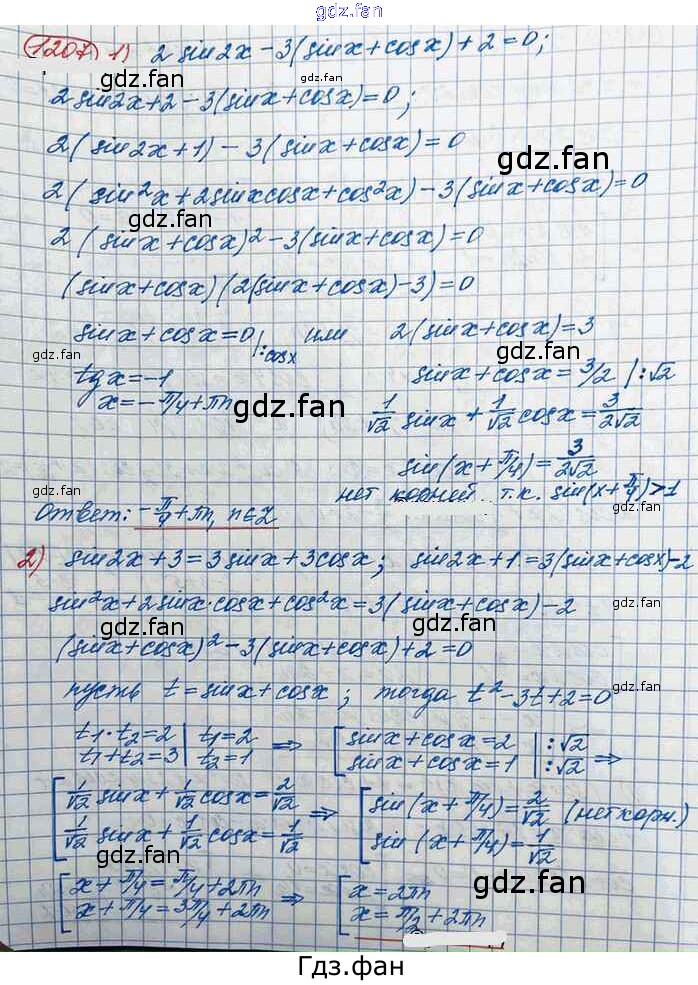 gdz.fan
1207 1) 2 sin2x - 3(sinx + cosx) + 2 = 0;
gdz.fan
2 sin2x + 2 - 3(sinx + cosx) = 0;
2(sin2x + 1) - 3(sinx + cosx) = 0
gdz.fan
2(sin²x + 2sinxcosx + cos²x) - 3(sinx + cosx) = 0
gdz.fan
2(sinx + cosx)² - 3(sinx + cosx) = 0
gdz.fan
(sinx + cosx)(2(sinx + cosx) - 3) = 0
sinx + cosx = 0 |:cosx или 2(sinx + cosx) = 3
gdz.fan gdz.fan
tgx = -1 sinx + cosx = 3/2 |:√2
x = -π/4 + πn 1/√2 sinx + 1/√2 cosx = 3/2√2
gdz.fan gdz.fan
sin(x + π/4) = 3/2√2
нет корней, т.к. sin(x + π/4) > 1
gdz.fan
Ответ: -π/4 + πn, n∈Z
gdz.fan
2) sin2x + 3 = 3sinx + 3cosx; sin2x + 1 = 3(sinx + cosx) - 2
sin²x + 2sinx·cosx + cos²x = 3(sinx + cosx) - 2
gdz.fan gdz.fan
(sinx + cosx)² - 3(sinx + cosx) + 2 = 0
gdz.fan
пусть t = sinx + cosx; тогда t² - 3t + 2 = 0
gdz.fan
t₁·t₂ = 2 | t₁ = 2 ⇒ [ sinx + cosx = 2 |:√2
t₁ + t₂ = 3 | t₂ = 1 [ sinx + cosx = 1 |:√2 ⇒
gdz.fan
[ 1/√2 sinx + 1/√2 cosx = 2/√2 ⇒ [ sin(x + π/4) = 2/√2 (нет корн.)
[ 1/√2 sinx + 1/√2 cosx = 1/√2 [ sin(x + π/4) = 1/√2
gdz.fan gdz.fan
[ x + π/4 = π/4 + 2πn ⇒ [ x = 2πn
[ x + π/4 = 3π/4 + 2πn [ x = π/2 + 2πn
gdz.fan gdz.fan
Гдз.фан